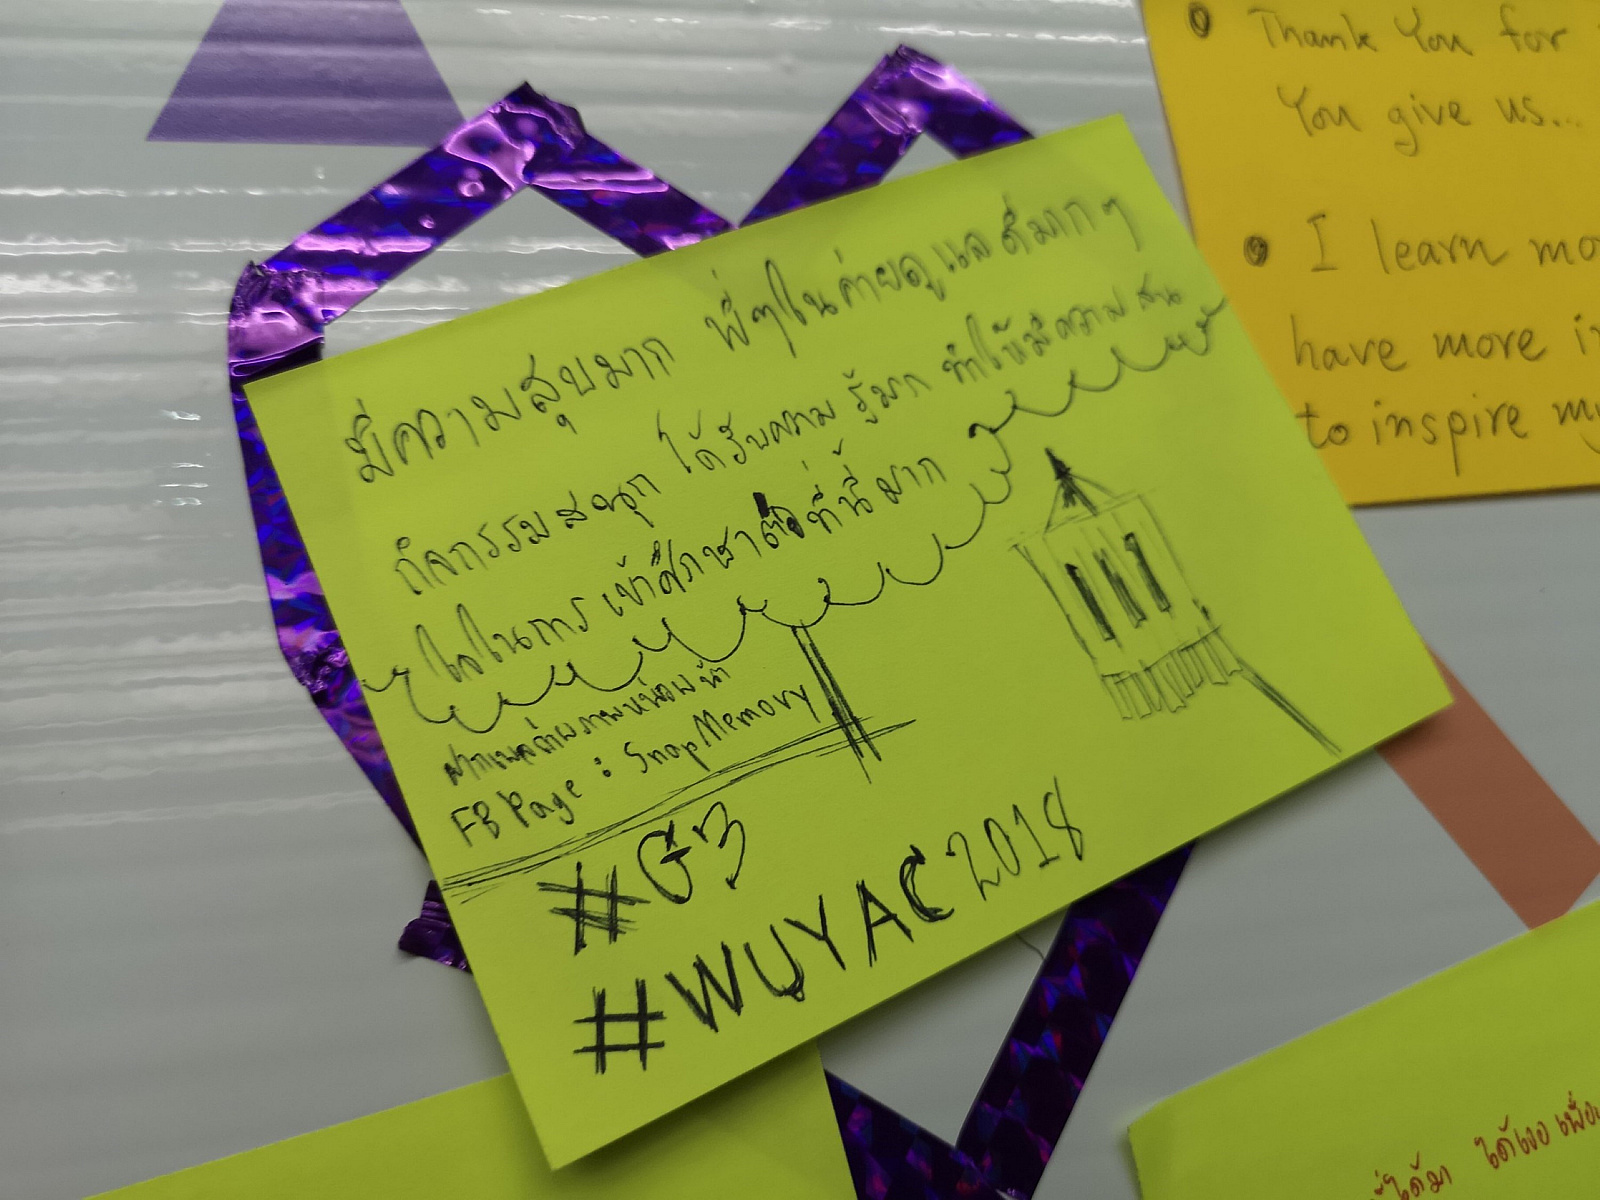 มีความสุขมาก พี่ๆในค่ายดูแลดีมากๆ
กิจกรรมสนุก ได้รับความรู้มาก ทำให้มีความสน
ใจในการเข้าศึกษาต่อที่นี่มาก
ฝากเพจถ่ายภาพหน่อยน้า
FB Page : SnapMemory
#G3
#WUYAC2018
Thank You for
You give us...
I learn mo
have more i
to inspire my
ได้มา ได้เจอเพื่อ